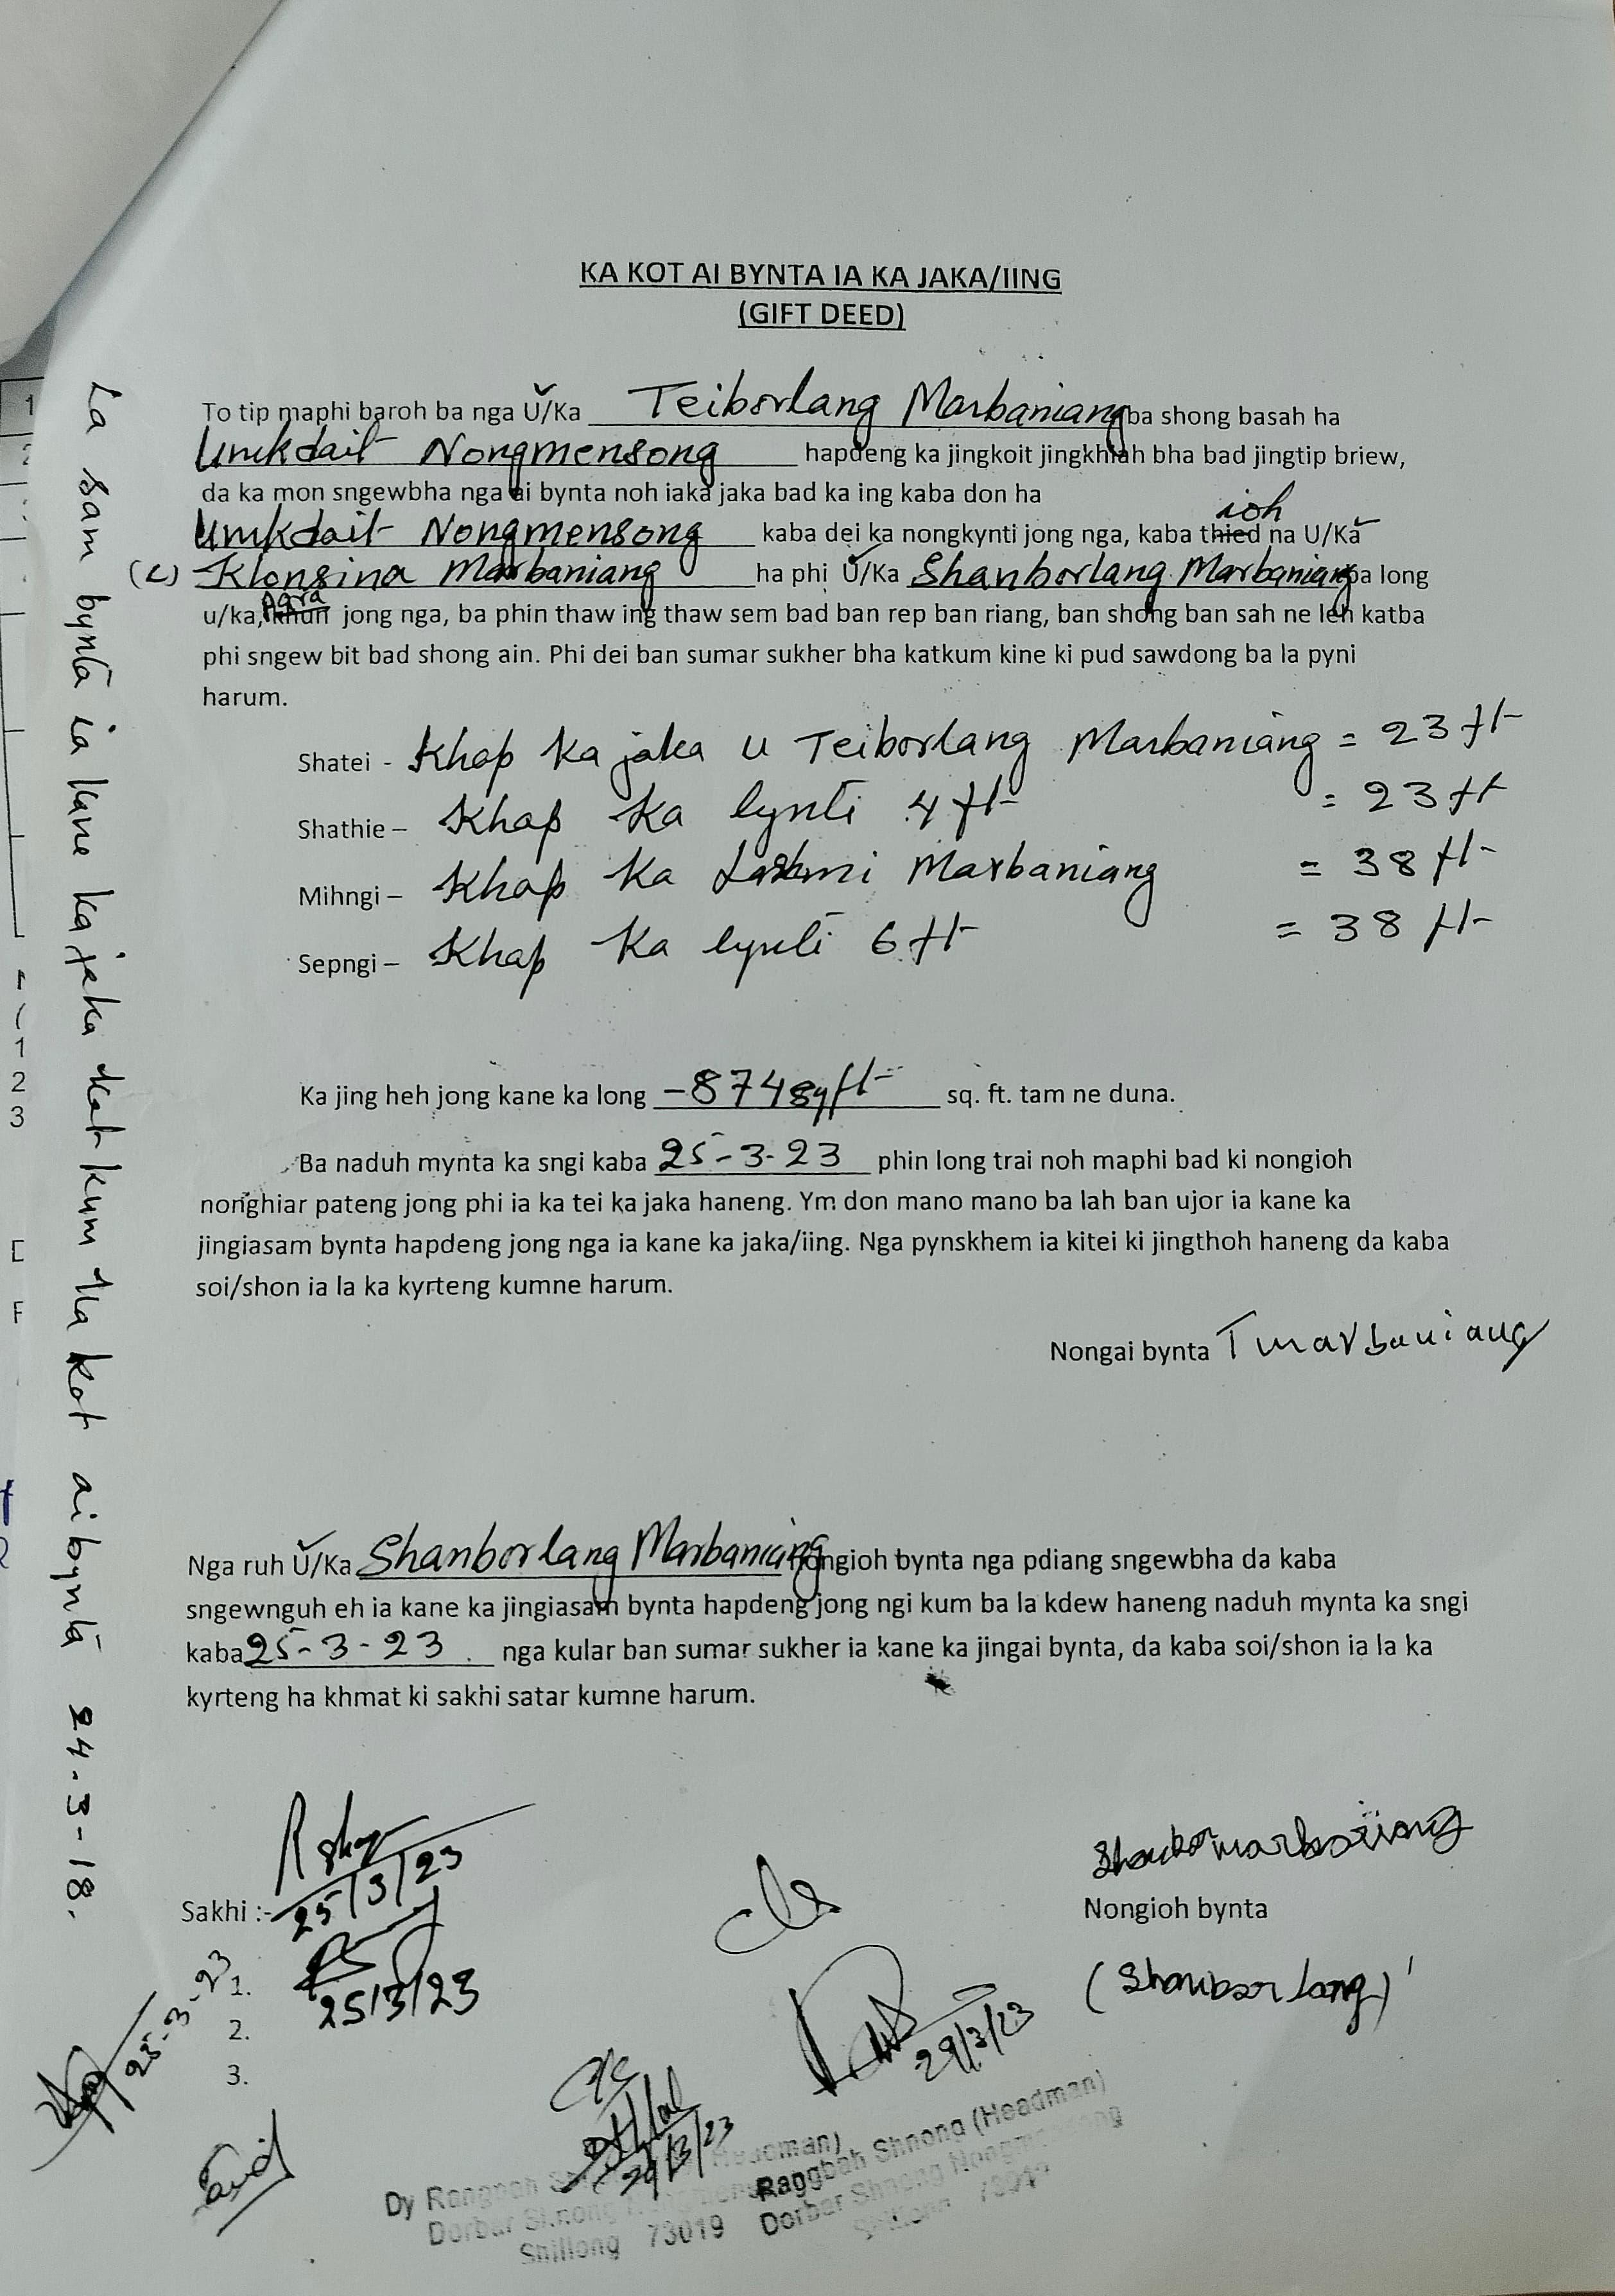 KA KOT AI BYNTA IA KA JAKA/IING
(GIFT DEED)
To tip maphi baroh ba nga U/Ka Teiborlang Marbaniang ba shong basah ha
Umkdait Nongmensong hapdeng ka jingkoit jingkhiah bha bad jingtip briew,
da ka mon sngewbha nga ai bynta noh iaka jaka bad ka ing kaba don ha
ioh
Umkdait Nongmensong kaba dei ka nongkynti jong nga, kaba thied na U/Ka
(L) Klonsina Marbaniang ha phi U/Ka Shanborlang Marbaniang ba long
u/ka, para khun jong nga, ba phin thaw ing thaw sem bad ban rep ban riang, ban shong ban sah ne leh katba
phi sngew bit bad shong ain. Phi dei ban sumar sukher bha katkum kine ki pud sawdong ba la pyni
harum.
Shatei - Khap ka jaka u Teiborlang Marbaniang = 23 ft
Shathie – Khap ka lynti 4 ft = 23 ft
Mihngi – Khap ka Marbaniang = 38 ft
Sepngi – Khap ka lynti 6 ft = 38 ft
Ka jing heh jong kane ka long - 874 sq ft sq. ft. tam ne duna.
Ba naduh mynta ka sngi kaba 25-3-23 phin long trai noh maphi bad ki nongioh
nonghiar pateng jong phi ia ka tei ka jaka haneng. Ym don mano mano ba lah ban ujor ia kane ka
jingiasam bynta hapdeng jong nga ia kane ka jaka/iing. Nga pynskhem ia kitei ki jingthoh haneng da kaba
soi/shon ia la ka kyrteng kumne harum.
Nongai bynta T Marbaniang
Nga ruh U/Ka Shanborlang Marbaniang Nongioh bynta nga pdiang sngewbha da kaba
sngewnguh eh ia kane ka jingiasam bynta hapdeng jong ngi kum ba la kdew haneng naduh mynta ka sngi
kaba 25-3-23 nga kular ban sumar sukher ia kane ka jingai bynta, da kaba soi/shon ia la ka
kyrteng ha khmat ki sakhi satar kumne harum.
Sakhi :-
25/3/23
1.
25/3/23
2.
3.
25-3-23
Nongioh bynta
(Shanborlang)
29/3/23
29/3/23
Dy Rangbah (Headman)
Dorbar Shnong
Shillong 73019
Rangbah Shnong (Headman)
Dorbar Shnong Nongmensong
Shillong 73019
La sam bynta ia kane ka jaka kat kum ka kot ai bynta 24-3-18.